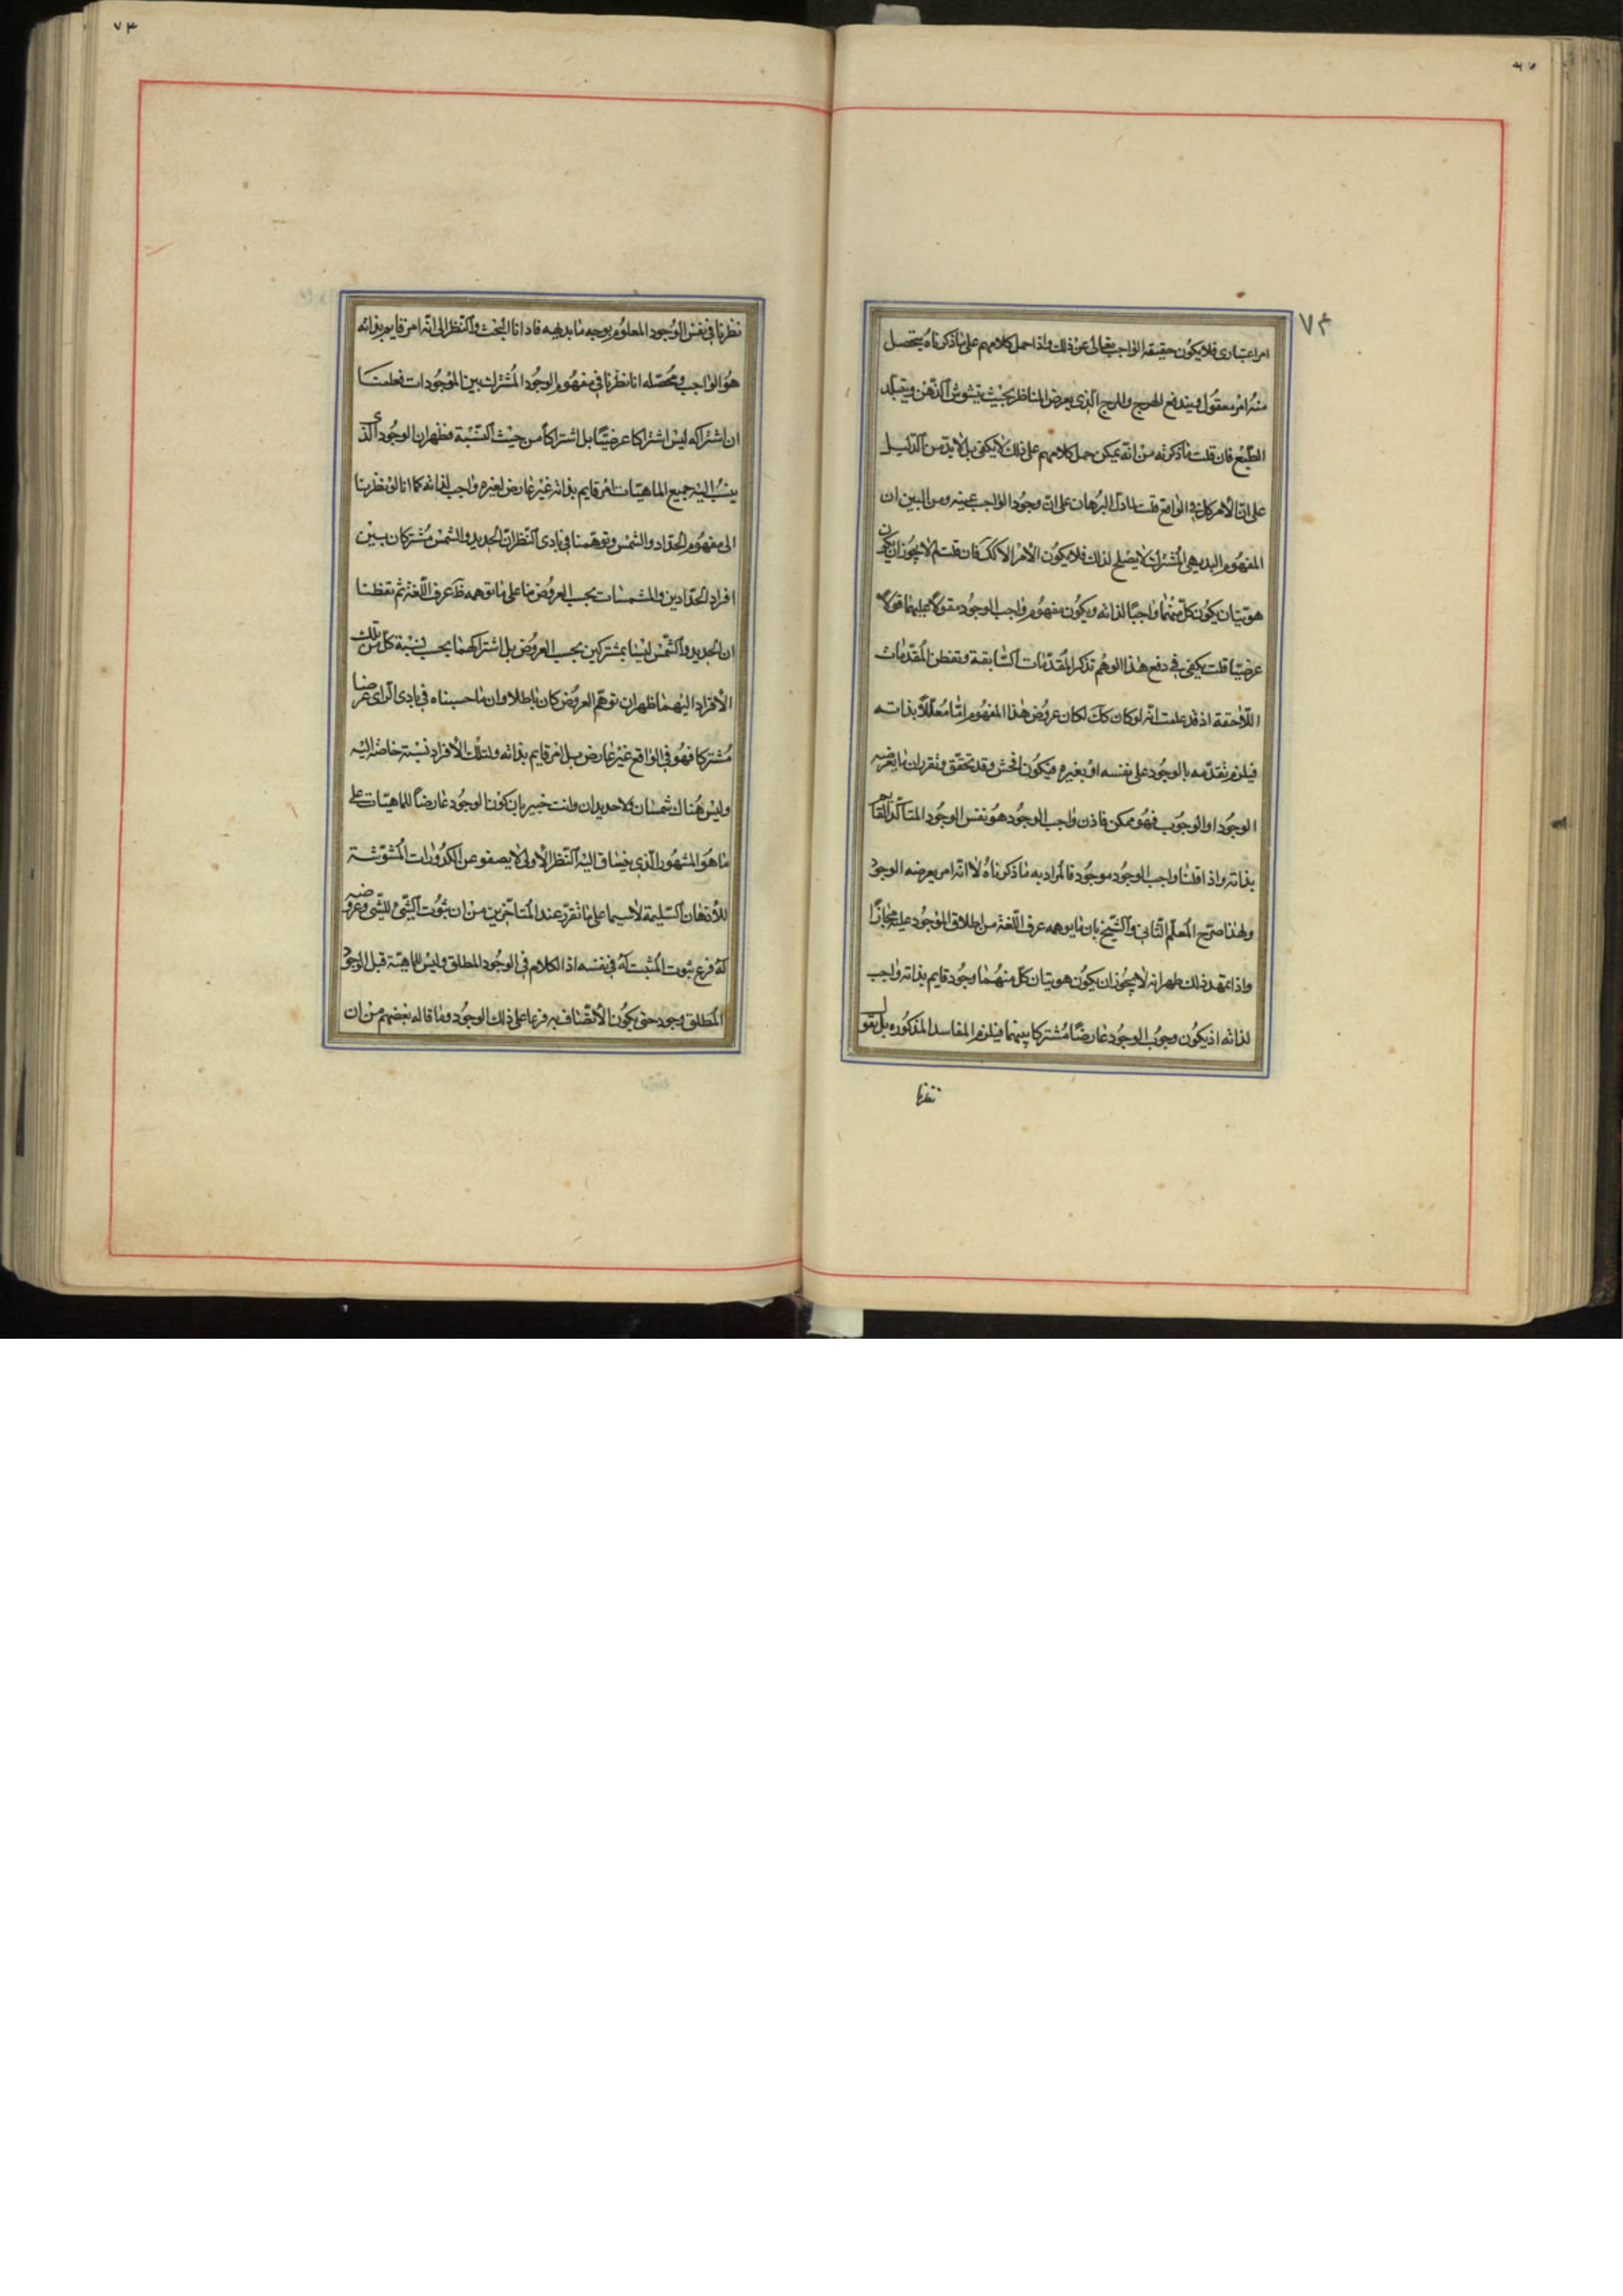 ٧٤
امر اعتباری فلا یکون حقیقة الواجب تعالی عن ذلک واذا حمل کلامهم علی ما ذکرناه یتحصل
منه امر معقول ویندفع الهرج والمرج الذی یعرض للناظر بحیث یتشوش الذهن ویتبلد
الطبع فان قلت ما ذکرته من انه یمکن حمل کلامهم علی ذلک لا یکفی بل لا بد من الدلیل
علی ان الامر کذلک فی الواقع قلت لما دل البرهان علی ان وجود الواجب عینه ومن البین ان
المفهوم البدیهی المشترک لا یصلح لذلک فلا یکون الامر الا کک فان قلت لم لا یجوز ان یکون
هویتان یکون کل منهما واجبا لذاته ویکون مفهوم واجب الوجود مقولا علیهما قولا
عرضیا قلت یکفی فی دفع هذا الوهم تذکر المقدمات السابقة وتفطن المقدمات
اللاحقة اذ قد علمت انه لو کان کک لکان عروض هذا المفهوم اما معللا بذاته
فیلزم تقدمه بالوجود علی نفسه او بغیره فیکون افحش وقد تحقق وتقرر ان ما یعرضه
الوجود او الوجوب فهو ممکن فاذن واجب الوجود هو نفس الوجود المتاکد القایم
بذاته واذا قلنا واجب الوجود موجود فالمراد به ما ذکرناه لا انه امر یعرضه الوجود
ولهذا صرح المعلم الثانی والشیخ بان ما یوهمه عرف اللغة من اطلاق الموجود علیه مجازا
واذا تمهد ذلک ظهر انه لا یجوز ان یکون هویتان کل منهما وجود قایم بذاته واجب
لذاته اذ یکون وجوب الوجود عارضا مشترکا بینهما فیلزم المفاسد المذکوره بل نقول
نظرنا
٧٣
نظرنا فی نفس الوجود المعلوم بوجه ما بدیهیه فادانا البحث والنظر الی انه امر قایم بذاته
هو الواجب ومحصله انا نظرنا فی مفهوم الوجود المشترک بین الموجودات فعلمنا
ان اشتراکه لیس اشتراکا عرضیا بل اشتراکا من حیث النسبة فظهر ان الوجود الذی
ینسب الیه جمیع الماهیات امر قایم بذاته غیر عارض لغیره واجب لذاته کما انا لو نظرنا
الی مفهوم الحداد والشمس وتوهمنا فی بادی النظر ان الحدید والشمس مشترکان بین
افراد الحدادین والمشمسات بحسب العروض بنا علی ما توهمه ظ عرف اللغة ثم تفطنا
ان الحدید والشمس لیسا بمشترکین بحسب العروض بل اشتراکهما بحسب نسبة کل من تلک
الافراد الیهما ظهر ان توهم العروض کان باطلا وان ما حسبناه فی بادی الرای عرضا
مشترکا فهو فی الواقع غیر عارض بل امر قایم بذاته ولتلک الافراد نسبة خاصة الیه
ولیس هناک شمسان ولا حدیدان وانت خبیر بان کون الوجود عارضا للماهیات علی
ما هو المشهور الذی ینساق الیه النظر الاولی لا یصفو عن الکدورات المشوشة
للاذهان السلیمة لا سیما علی ما تقرر عند المتاخرین من ان ثبوت الشیء للشیء وعروضه
له فرع ثبوت المثبت له فی نفسه اذ الکلام فی الوجود المطلق ولیس للماهیة قبل الوجود
المطلق وجود حتی یکون الاتصاف به فرعا علی ذلک الوجود وما قاله بعضهم من ان